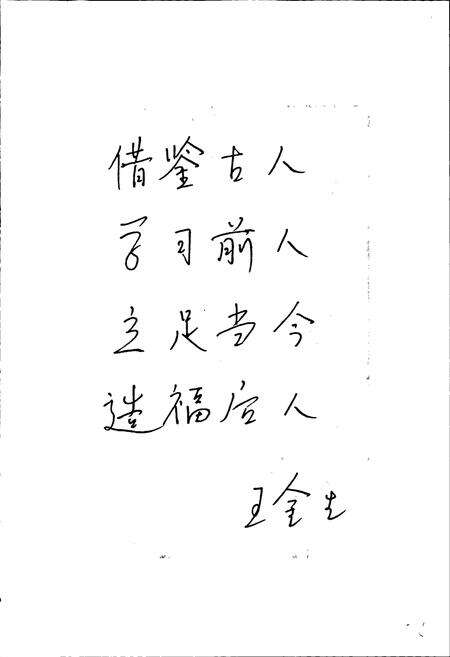 借鉴古人
学习前人
立足当今
造福后人
王全生